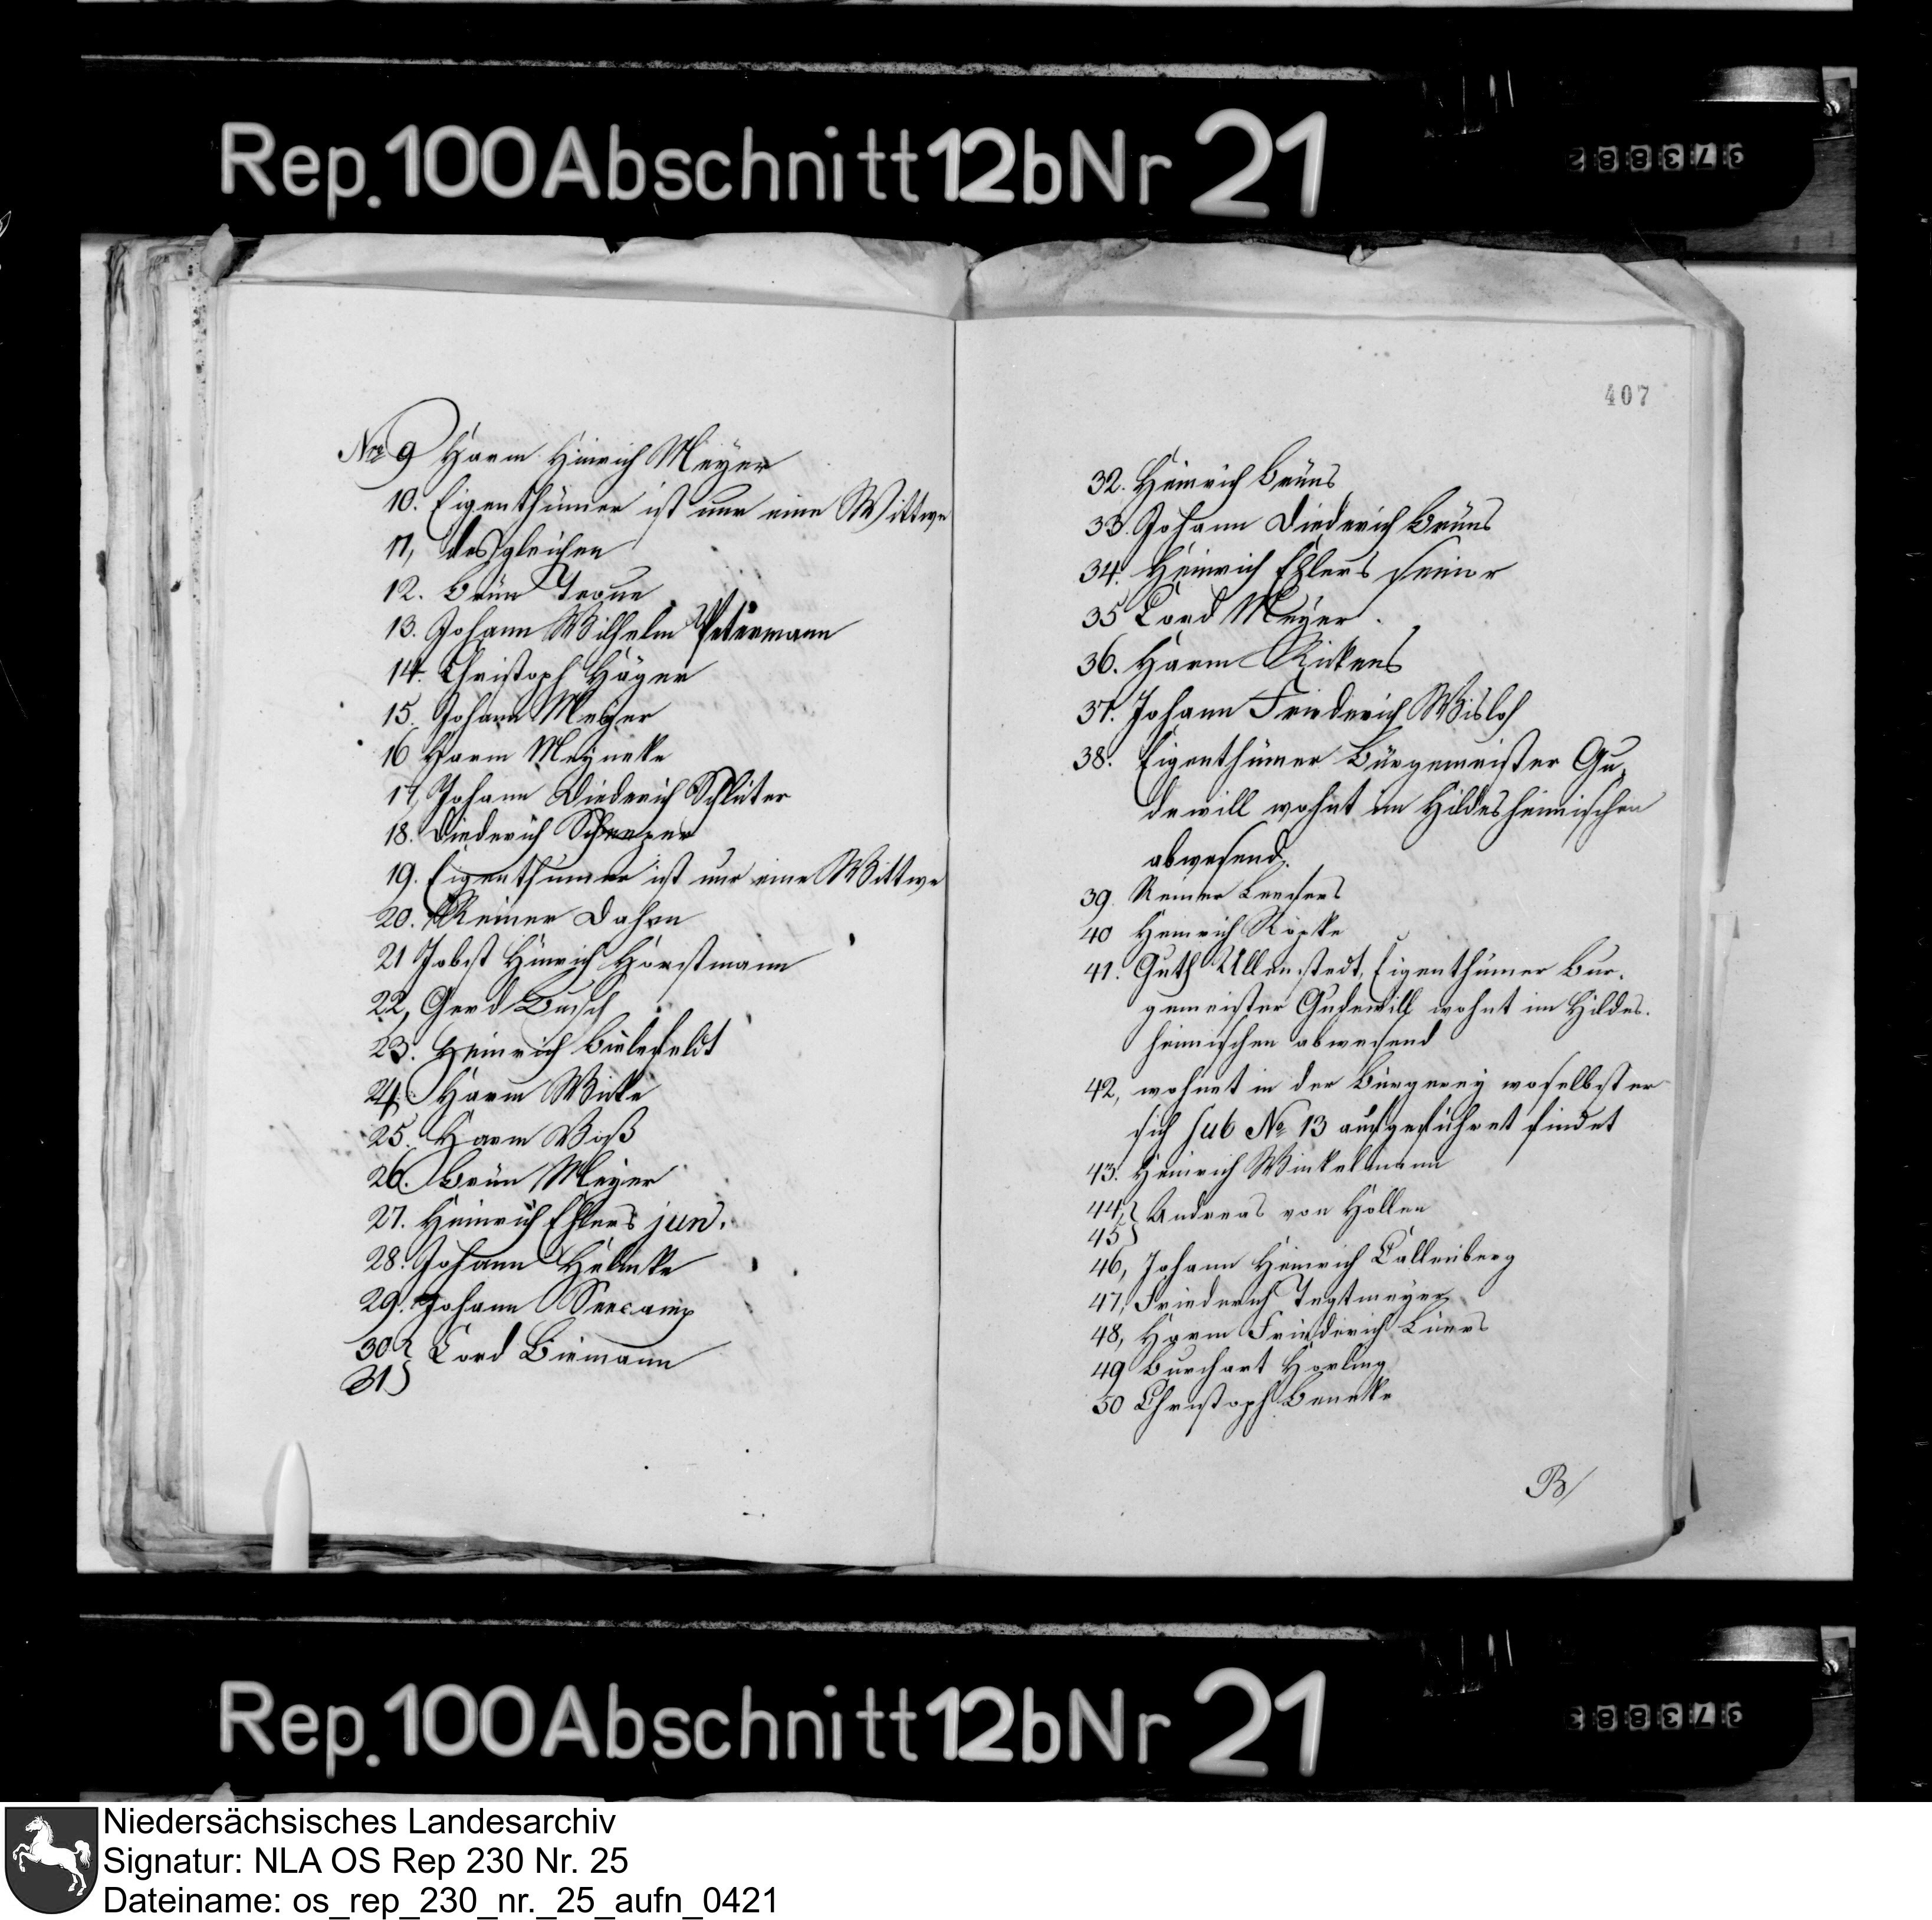 Rep. 100 Abschnitt 12b Nr 21
373882
407
No 9 Harm Hinrich Meyer
10. Eigenthümer ist nur eine Wittwe
11, desgleichen
12. Brün
13. Johann Wilhelm Petermann
14. Christoph Häger
15. Johann Meyer
16 Harm Meyneke
17, Johann Diederich Schlüter
18. Diederich
19. Eigenthümer ist nur eine Wittwe
20. Reiner Dahm
21 Jobst Hinrich Horstmann
22, Gerd Busch
23. Heinrich Bielefeldt
24. Harm Wilke
25. Harm Voß
26. Brün Meyer
27. Heinrich Ehlers jun.
28. Johann Helmke
29. Johann Seecamp
30
31) Cord Biemann
32. Heinrich Brüns
33. Johann Diederich Brüns
34. Heinrich Ehlers senior
35 Cord Meyer.
36. Harm Rickens
37. Johann Friederich Wisloh
38. Eigenthümer Bürgemeister Gu-
dewill wohnt im Hildesheimischen
abwesend.
39. Reiner
40 Heinrich Köpke
41. Guth Ullenstedt, Eigenthümer Bur-
gemeister Gudewill wohnt im Hildes-
heimischen abwesend
42, wohnet in der Bürgerey woselbst er
sich sub No 13 aufgeführet findet
43. Heinrich Winkelmann
44,
45) Andreas von Hollen
46, Johann Heinrich Callenberg
47, Friederich Tegtmeyer
48, Harm Friederich Lüers
49 Burchart Horling
50 Christoph Beneke
B/
Rep. 100 Abschnitt 12b Nr 21
373883
Niedersächsisches Landesarchiv
Signatur: NLA OS Rep 230 Nr. 25
Dateiname: os_rep_230_nr._25_aufn_0421